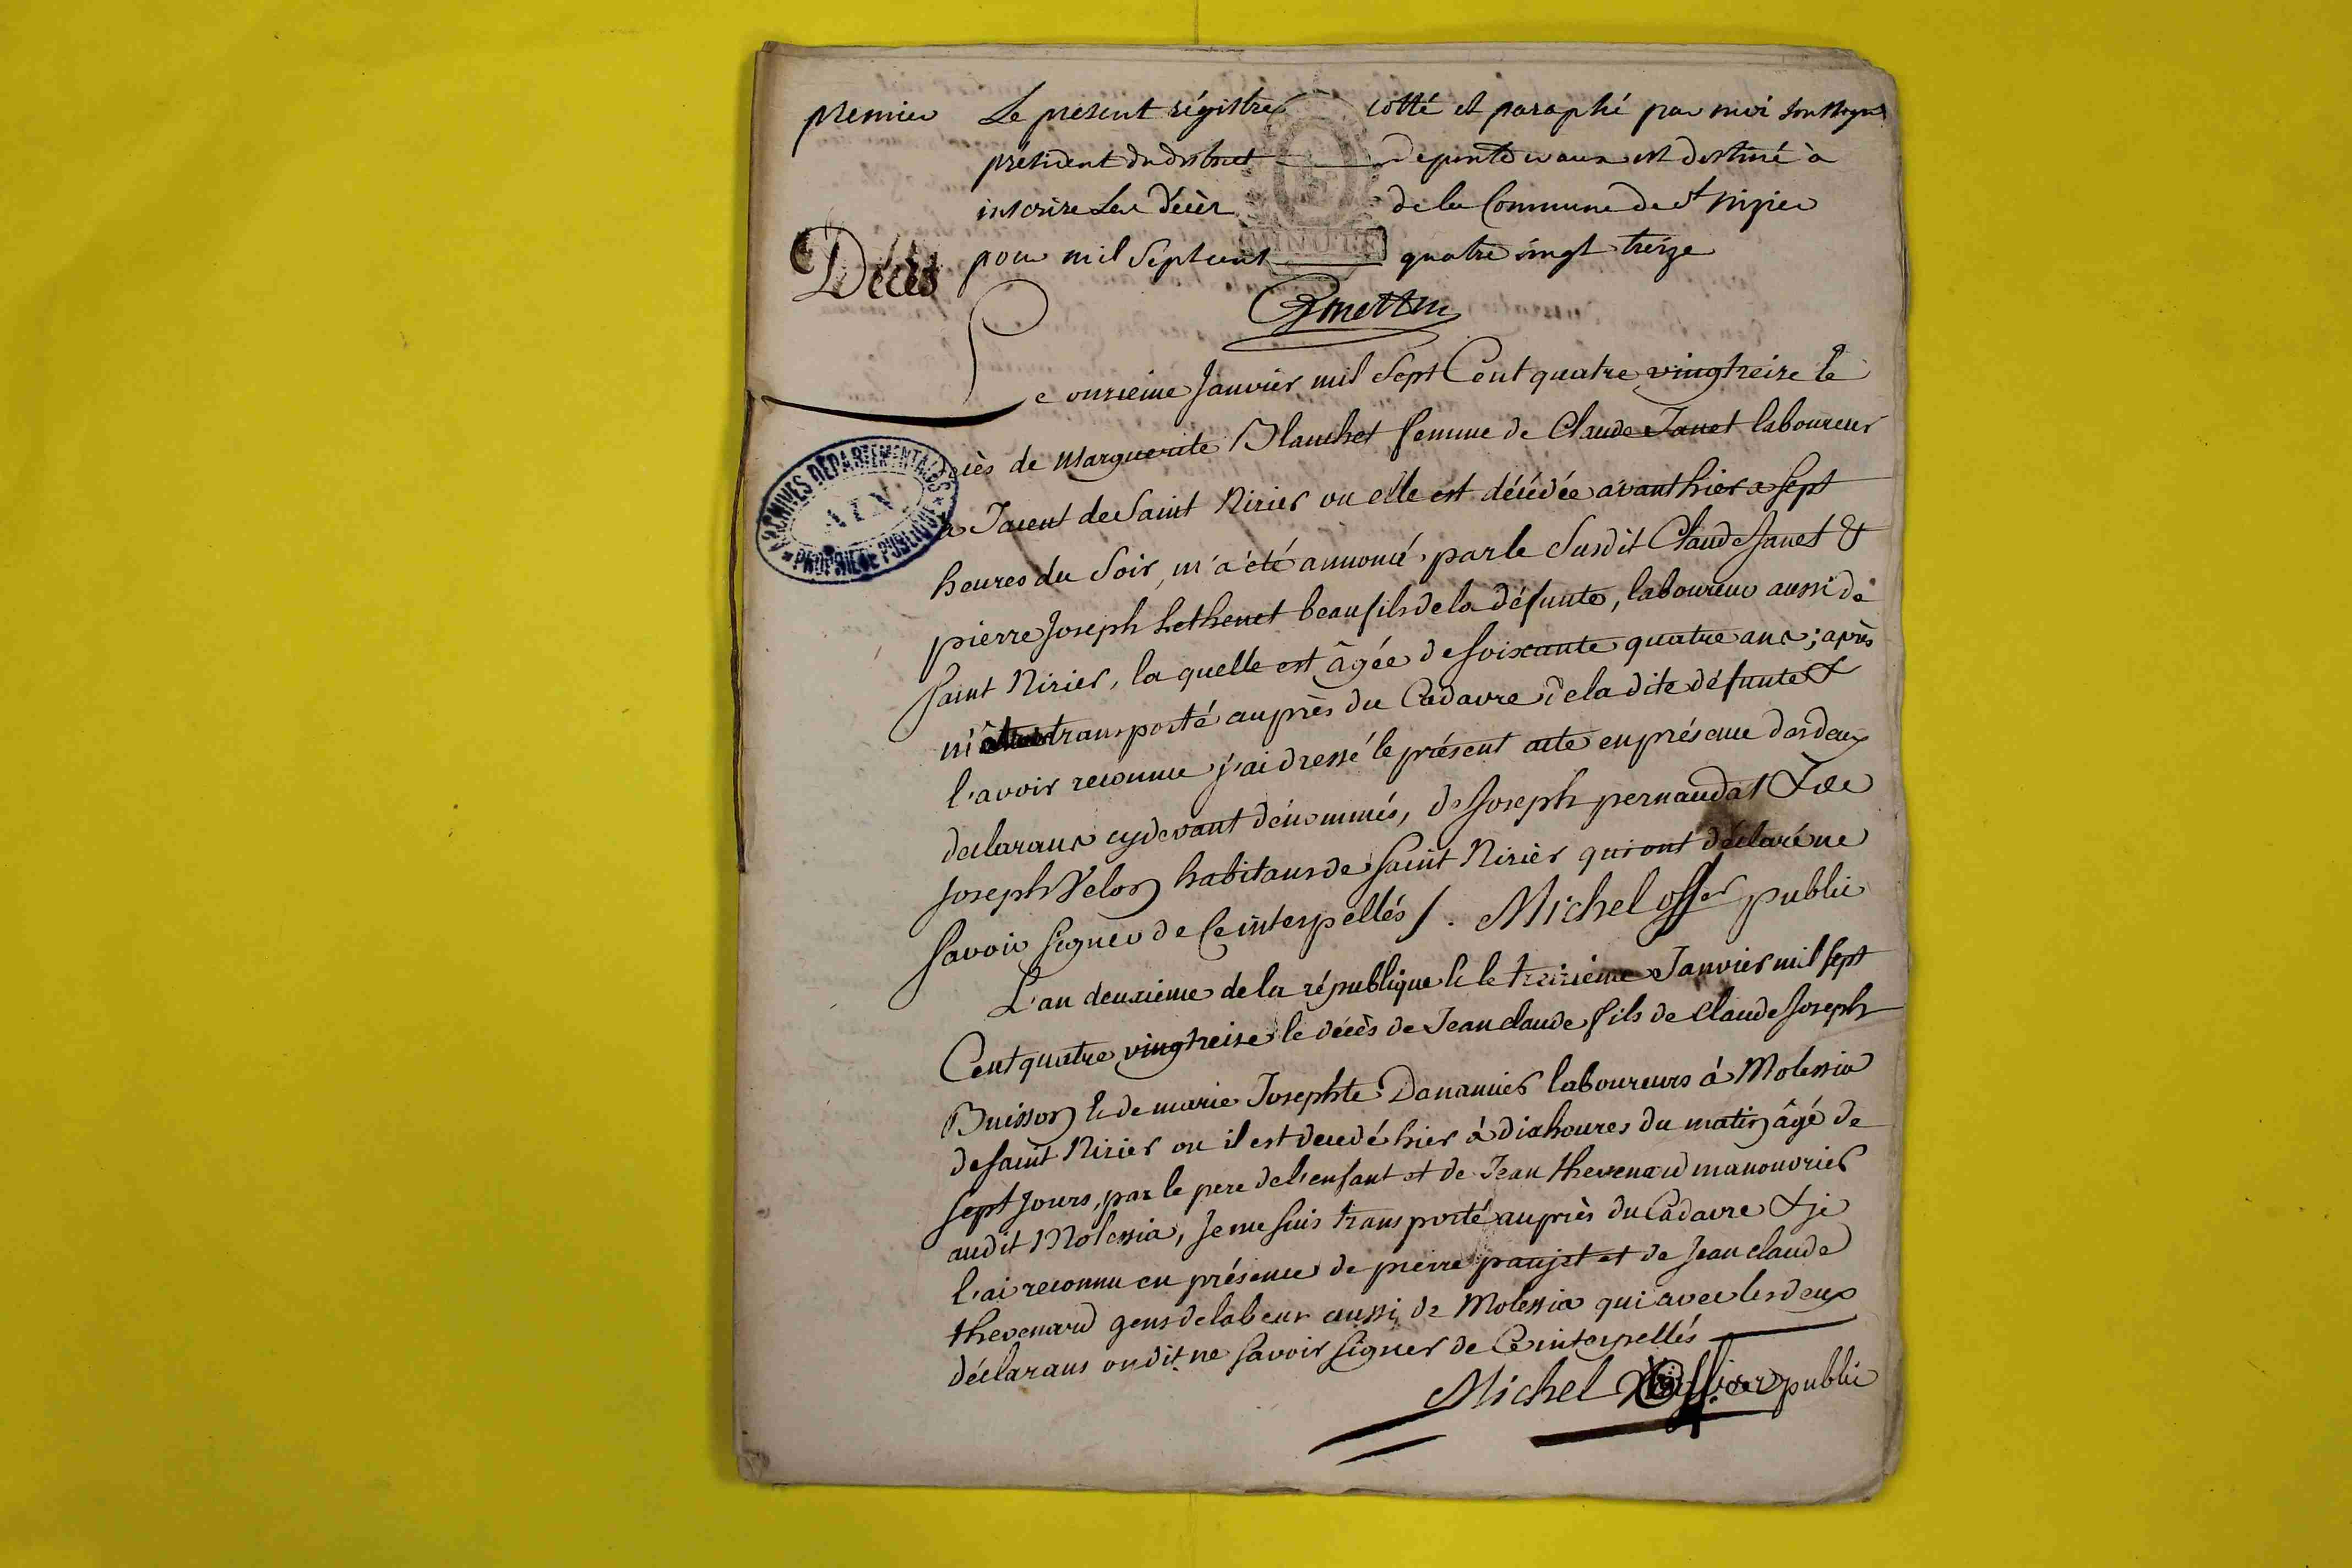 premier Le présent régistre cotté et paraphé par moi soussigné
président du district de pontdevaux est destiné à
inscrire Les décès de la Commune de St Nizier
pour mil sept cent quatre vingt treize
Décès
Le onzieme Janvier mil Sept Cent quatre vingtreize le
décès de Marguerite Blanchet femme de Claude Janet laboureur
a de Saint Nizier ou elle est décédée avanthier a sept
heures du Soir, m'a été annoncé par le Susdit Claude Janet &
pierre Joseph beaufils de la défunte, laboureur aussi de
Saint Nizier, la quelle est âgée de soixante quatre ans; après
m'être transporté auprès du Cadavre de la dite défunte &
l'avoir reconnue j'ai dressé le présent acte en présence des deux
declarans cydevant dénommés, de Joseph pernaudat & de
Joseph Velon habitans de Saint Nizier qui ont déclaré ne
savoir signer de ce interpellés /. Michel offer public
L'an deuxieme de la république & le treizieme Janvier mil sept
Cent quatre vingtreize le décès de Jean claude fils de Claude Joseph
Buisson & de marie Josephte Dananier laboureurs à Molessia
de saint Nizier ou il est decedé hier à dix houres du matin âgé de
sept Jours, par le pere de l'enfant et de Jean thevenard manouvrier
audit Molessia, Je me suis transporté auprès du Cadavre & je
l'ai reconnu en présence de pierre paujet et de Jean claude
thevenard gens de labeur aussi de Molessia qui avec les deux
déclarans ondit ne savoir signer de Ce interpellés
Michel officier public
ARCHIVES DÉPARTEMENTALES
AIN
PROPRIÉTÉ PUBLIQUE
MINUTE